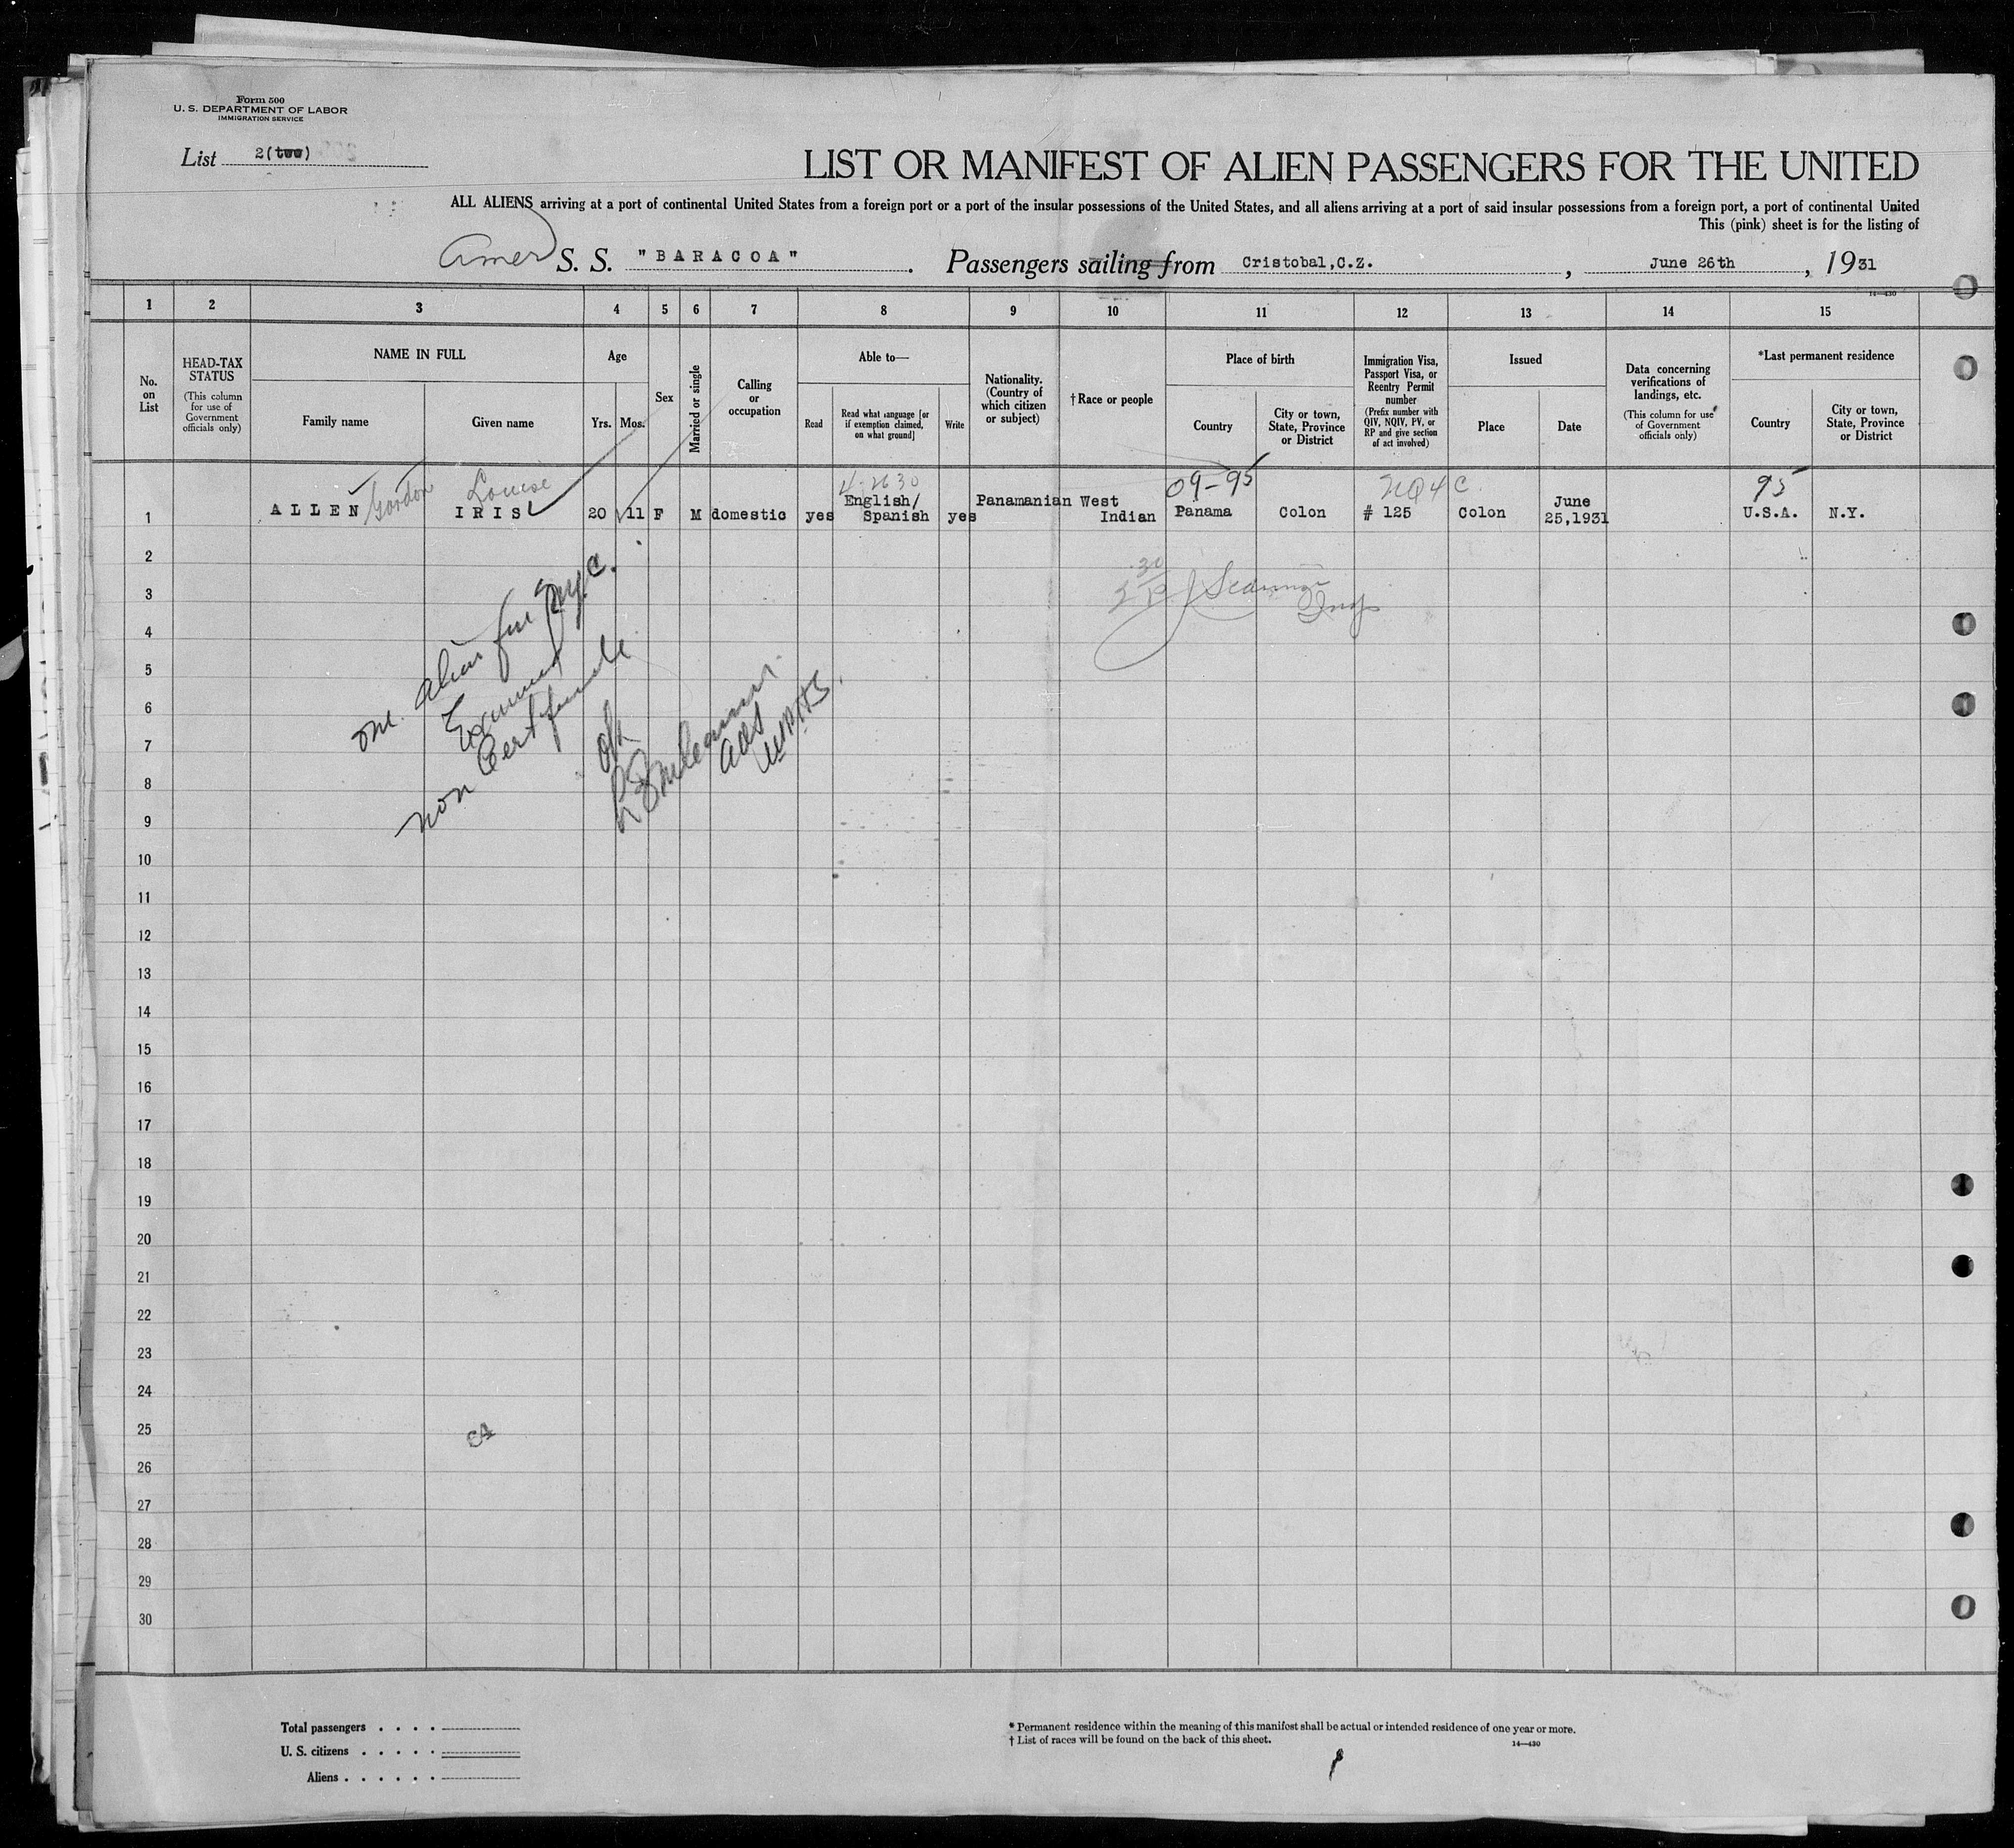 Form 500
U. S. DEPARTMENT OF LABOR
IMMIGRATION SERVICE
List 2(two)
LIST OR MANIFEST OF ALIEN PASSENGERS FOR THE UNITED
ALL ALIENS arriving at a port of continental United States from a foreign port or a port of the insular possessions of the United States, and all aliens arriving at a port of said insular possessions from a foreign port, a port of continental United
This (pink) sheet is for the listing of
Amer S. S. "BARACOA". Passengers sailing from Cristobal,C.Z., June 26th, 1931
14—430
1 2 3 4 5 6 7 8 9 10 11 12 13 14 15
No. on List
HEAD-TAX STATUS
(This column for use of Government officials only)
NAME IN FULL
Family name
Given name
Age
Yrs. Mos.
Sex
Married or single
Calling or occupation
Able to—
Read
Read what language [or if exemption claimed, on what ground]
Write
Nationality. (Country of which citizen or subject)
†Race or people
Place of birth
Country
City or town, State, Province or District
Immigration Visa, Passport Visa, or Reentry Permit number
(Prefix number with QIV, NQIV, PV, or RP and give section of act involved)
Issued
Place
Date
Data concerning verifications of landings, etc.
(This column for use of Government officials only)
*Last permanent residence
Country
City or town, State, Province or District
Gordon Louise 09-95 95
1 ALLEN IRIS 20 11 F M domestic yes English/ Spanish yes Panamanian West Indian Panama Colon # 125 Colon June 25,1931 U.S.A. N.Y.
2
3
4
5
6
7
8
9
10
11
12
13
14
15
16
17
18
19
20
21
22
23
24
25
26
27
28
29
30
one alien for N.Y.C.
Examined
non Certifiable
ok
Total passengers . . . .
U. S. citizens . . . . .
Aliens . . . . . .
* Permanent residence within the meaning of this manifest shall be actual or intended residence of one year or more.
† List of races will be found on the back of this sheet.
14—430